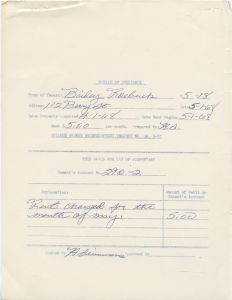 NOTICE OF OCCUPANCY
Name of Tenant: Bailey Roebuck 5-18
Address: 112 Barry St. Date 5-1-68
Date Property Acquired 4-1-68 Date Rent Begins 5-1-68
Rent $ 5.00 per month. Prepared by
THIS SPACE FOR USE OF ACCOUNTANT
Tenant's Account No. 290-2
Explanation: Amount of Debit to Tenant's Account
Rent charged for the 5.00
month of May.
Posted by